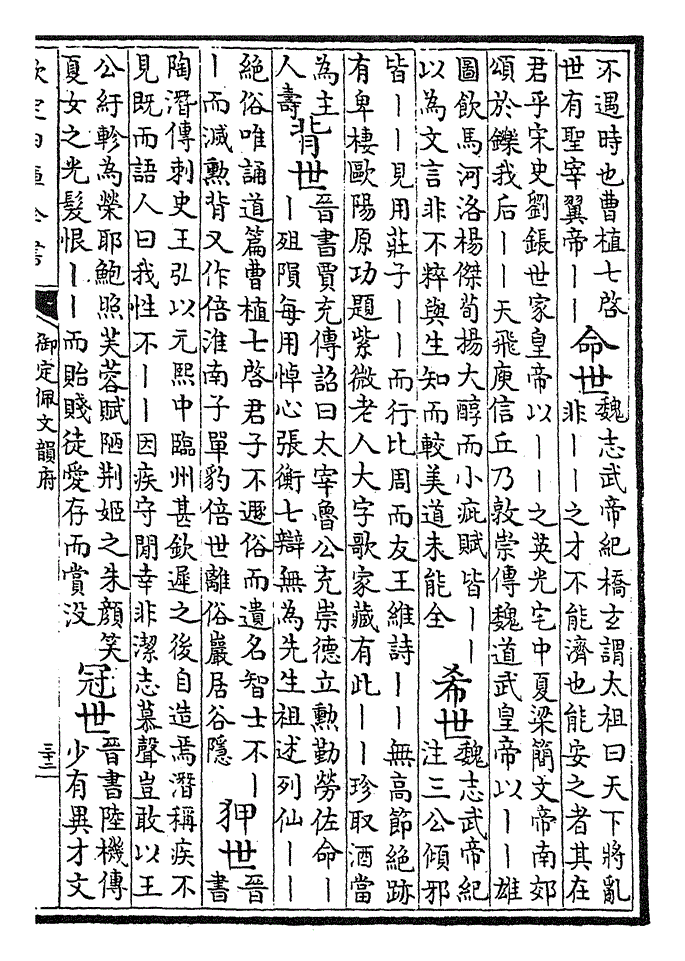 不遇時也曹植七啓
世有聖宰翼帝丨丨
命世
魏志武帝紀橋玄謂太祖曰天下將亂
非丨丨之才不能濟也能安之者其在
君乎宋史劉鋹世家皇帝以丨丨之英光宅中夏梁簡文帝南郊
頌於鑠我后丨丨天飛庾信丘乃敦崇傳魏道武皇帝以丨丨雄
圖飲馬河洛楊傑荀揚大醇而小疵賦皆丨丨
以為文言非不粹與生知而較美道未能全
希世
魏志武帝紀
注三公傾邪
皆丨丨見用莊子丨丨而行比周而友王維詩丨丨無高節絶跡
有卑棲歐陽原功題紫微老人大字歌家藏有此丨丨珍取酒當
為主
人壽
背世
晉書賈充傳詔曰太宰魯公充崇德立勲勤勞佐命丨
丨殂隕每用悼心張衡七辯無為先生祖述列仙丨丨
絶俗唯誦道篇曹植七啓君子不遯俗而遺名智士不丨
丨而滅勲背又作倍淮南子單豹倍世離俗巖居谷隱
狎世
晉
書
陶潛傳刺史王弘以元熙中臨州甚欽遲之後自造焉潛稱疾不
見既而語人曰我性不丨丨因疾守閒幸非潔志慕聲豈敢以王
公紆軫為榮耶鮑照芙蓉賦陋荆姬之朱顏笑
夏女之光髮恨丨丨而貽賤徒愛存而賞没
冠世
晉書陸機傳
少有異才文
欽定四庫全書
御定佩文韻府
三十二